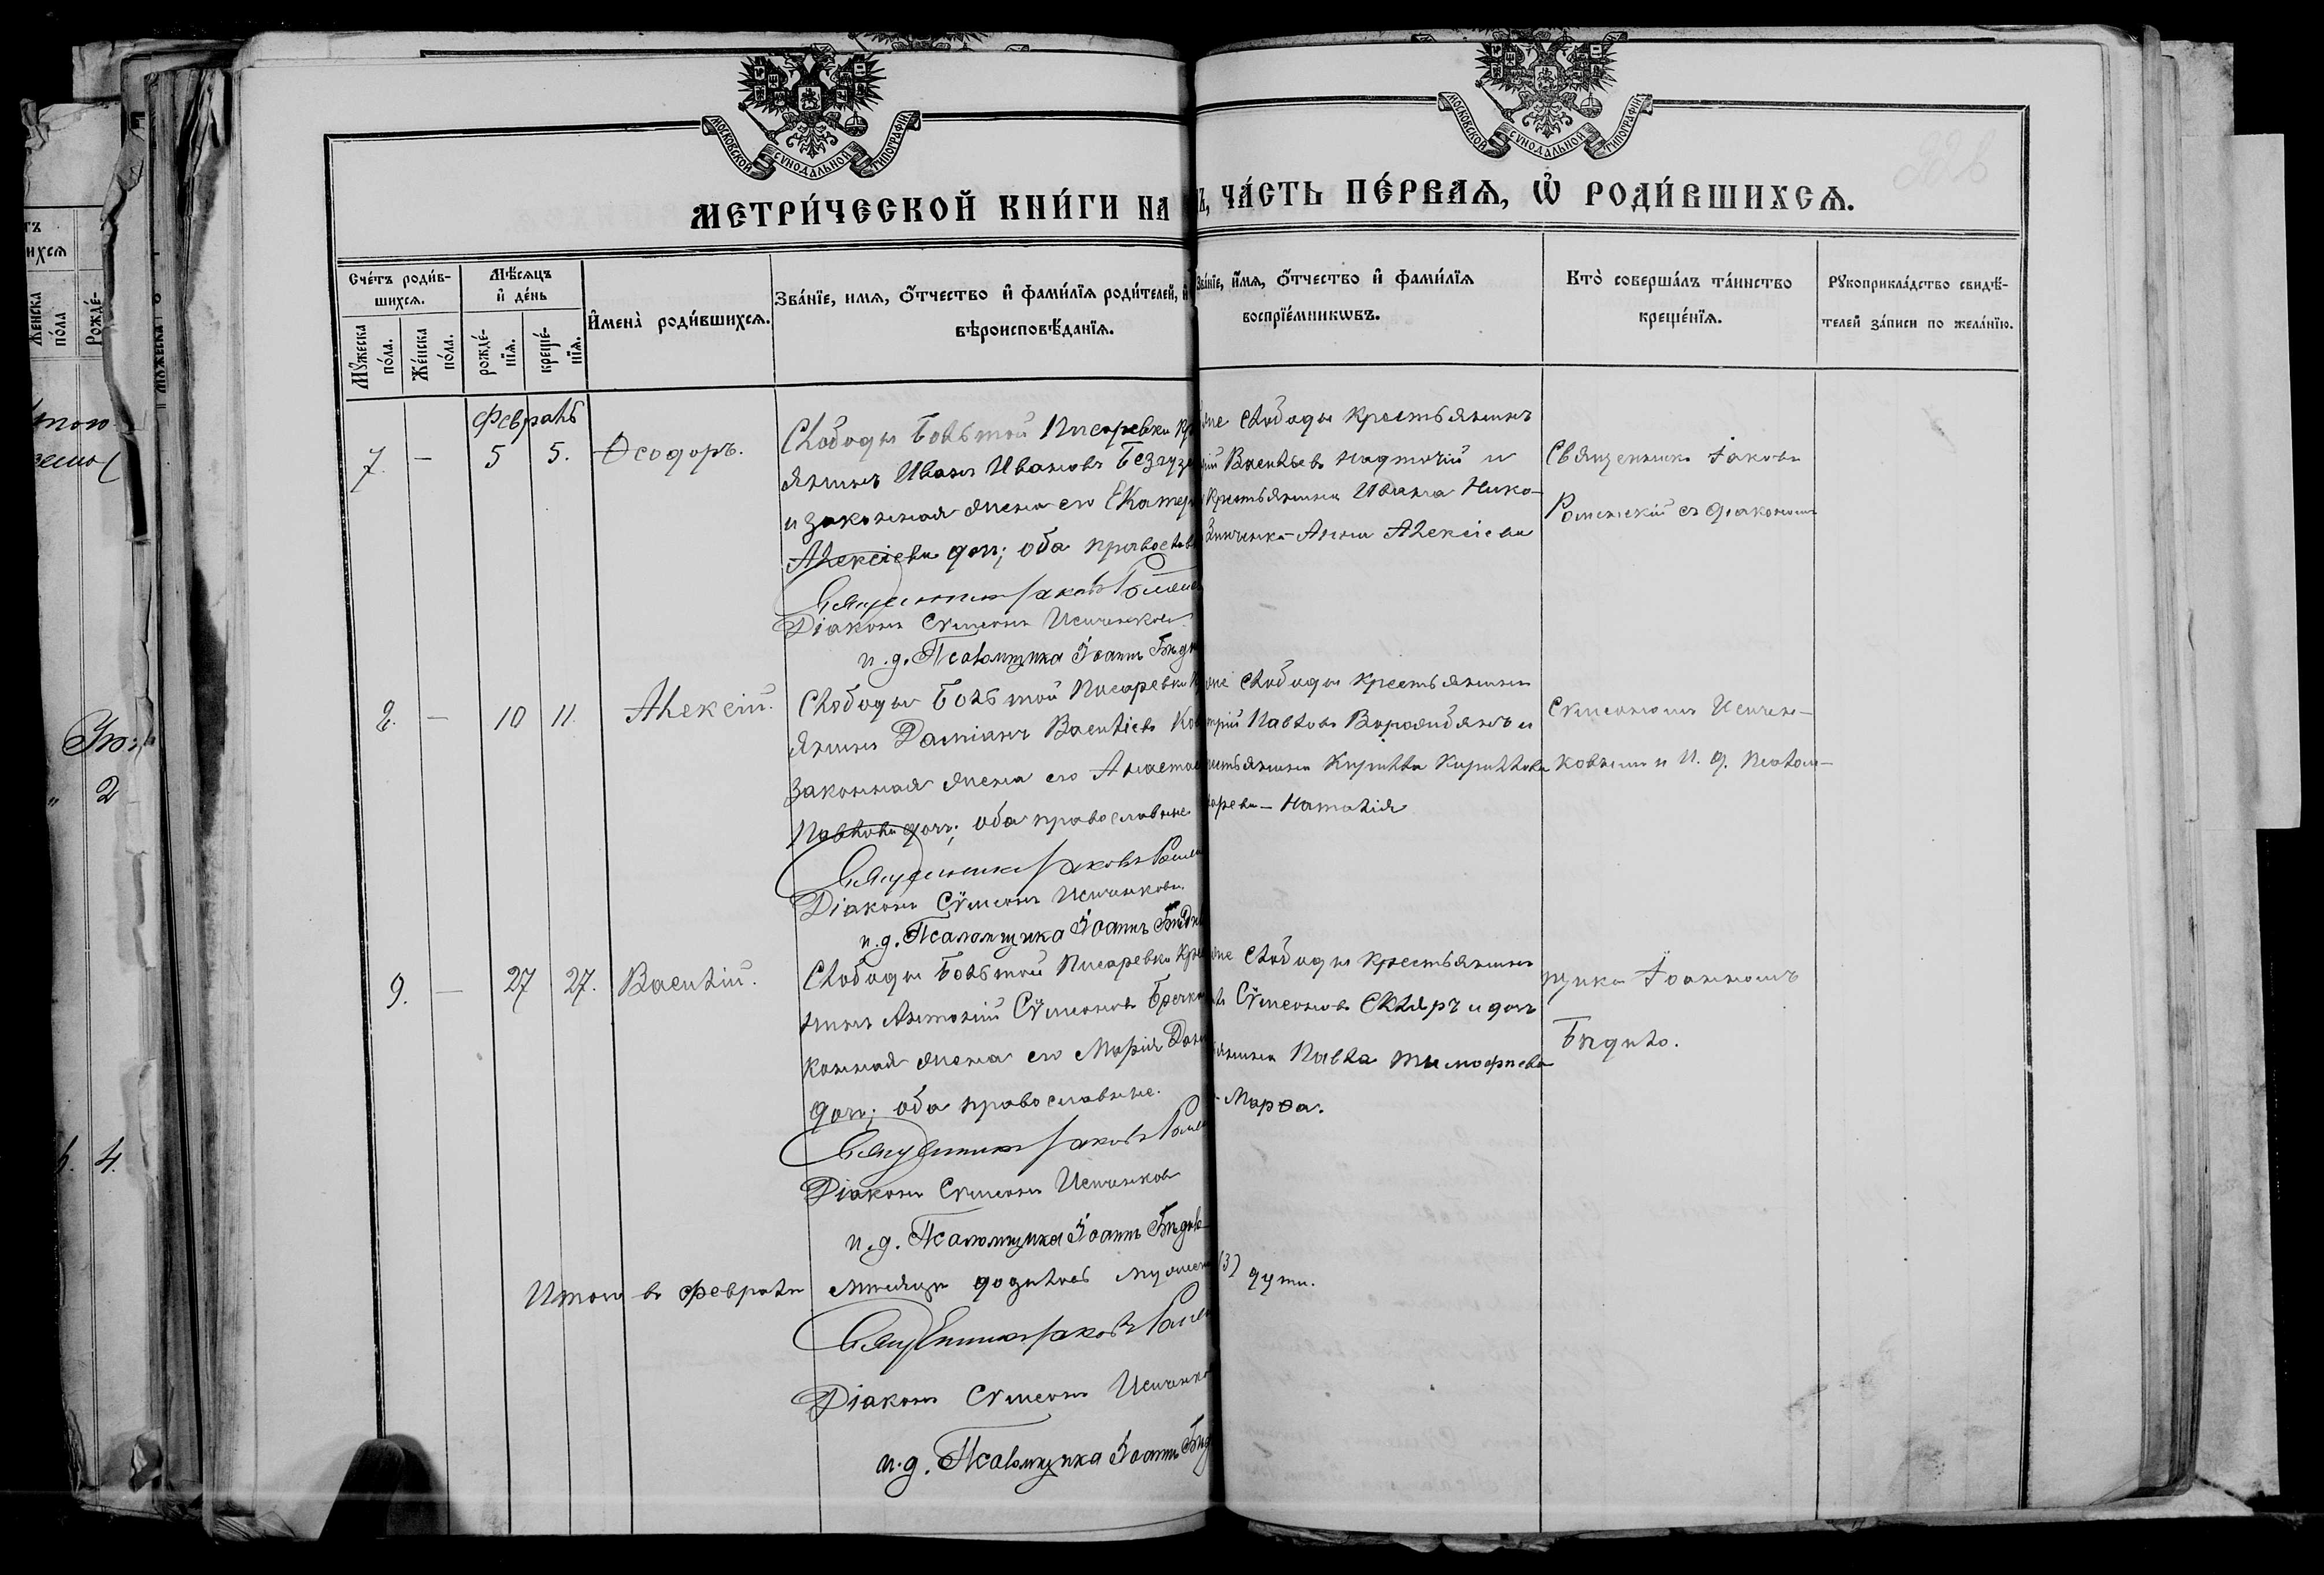 МОСКОВСКОЙ СУНОДАЛЬНОЙ ТИПОГРАФІИ
МОСКОВСКОЙ СУНОДАЛЬНОЙ ТИПОГРАФІИ
МЕТРИ́ЧЕСКОЙ КНИ́ГИ НА
Ъ, ЧА́СТЬ ПЕ́РВАЯ, Ѡ҆ РОДИ́ВШИХСѦ.
Сче́тъ роди́в-
шихсѧ.
Мѣ́сяцъ
и҆ де́нь
Мꙋ́жеска по́ла.
Же́нска по́ла.
рожде́-
нїѧ.
креще́-
нїѧ.
И҆мена̀ роди́вшихсѧ.
Зва́нїе, имѧ, ѻ҆́тчество и҆ фами́лїѧ роди́телей, и҆
вѣроисповѣ́данїѧ.
Зва́нїе, и҆́мѧ, ѻ҆́тчество и҆ фами́лїѧ
воспрїе́мникѡвъ.
Кто̀ соверша́лъ та́инство
креще́нїѧ.
Рꙋкоприкла́дство свидѣ́-
телей за́писи по жела́нїю.
Февраль
7. — 5 5. Ѳеодоръ.
Слободы Большой Писаревки Кр
янинъ Иванъ Ивановъ Безгуз
и законная жена его Екатер
Алексіева доч; оба православ
Священникъ Іаковъ Роменс
Діаконъ Сѵмеонъ Исиченков
и. д. Псаломщика Іоаннъ Бѣд
же Слободы Крестьянинъ
Васильевъ Надточій и
Крестьянина Ивана Нико-
Зинченка Анна Алексіева
Священникъ Іаковъ
Роменскій съ діакономъ
8. — 10 11. Алексій.
Слободы Большой Писаревки К
янинъ Даміанъ Васильевъ Ко
законная жена его Анаста
Павлова доч; оба православные
Священникъ Іаковъ Роме
Діаконъ Сѵмеонъ Исиченковъ
и. д. Псаломщика Іоаннъ Бѣд
же Слободы Крестьянинъ
трій Павловъ Ворожбянъ и
стьянина Кирилла Кириллова
Наталія
Сѵмеономъ Исичен-
ковымъ и И. Д. Псалом-
9. — 27 27. Василій.
Слободы Большой Писаревки Кре
янинъ Антоній Сѵмеоновъ Бречк
конная жена его Марія Дан
доч; оба православные.
Священникъ Іаковъ Роме
Діаконъ Сѵмеонъ Исиченков
и. д. Псаломщика Іоаннъ Бѣд
же Слободы Крестьянинъ
Сѵмеоновъ Скляръ и доч
янина Павла Тимофѣева
Марѳа.
щика Іоанномъ
Бѣдило.
Итого въ Февралѣ мѣсяцѣ родилось мужеск (3) души.
Священникъ Іаковъ Роме
Діаконъ Сѵмеонъ Исиченко
и. д. Псаломщика Іоаннъ Бѣд